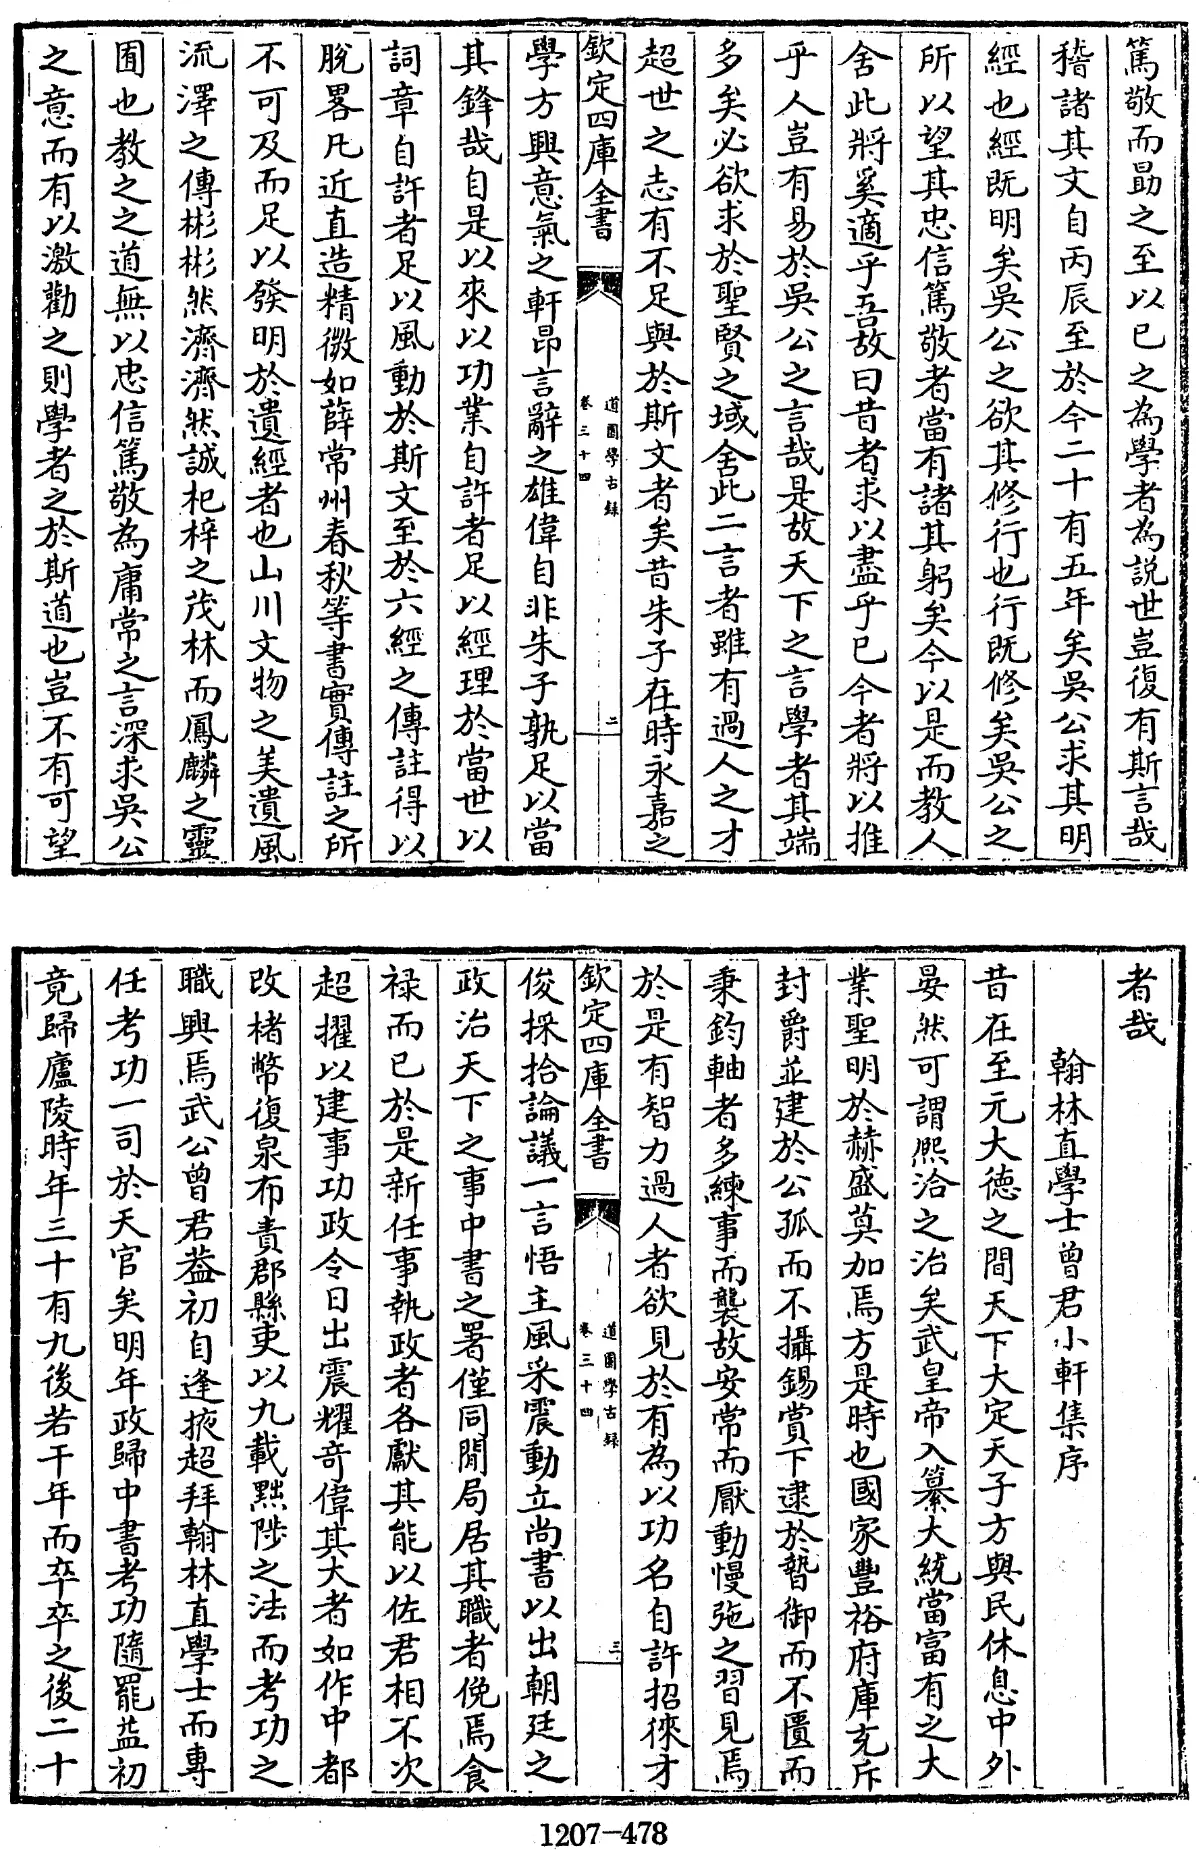 篤敬而勗之至以已之為學者為説世豈復有斯言哉
稽諸其文自丙辰至於今二十有五年矣吳公求其明
經也經既明矣吳公之欲其修行也行既修矣吳公之
所以望其忠信篤敬者當有諸其躬矣今以是而教人
舍此將奚適乎吾故曰昔者求以盡乎已今者將以推
乎人豈有易於吳公之言哉是故天下之言學者其端
多矣必欲求於聖賢之域舍此二言者雖有過人之才
超世之志有不足與於斯文者矣昔朱子在時永嘉之
欽定四庫全書
道園學古録
卷三十四
二
學方興意氣之軒昂言辭之雄偉自非朱子孰足以當
其鋒哉自是以來以功業自許者足以經理於當世以
詞章自許者足以風動於斯文至於六經之傳註得以
脫畧凡近直造精微如薛常州春秋等書實傳註之所
不可及而足以發明於遺經者也山川文物之美遺風
流澤之傳彬彬然濟濟然誠杞梓之茂林而鳳麟之靈
囿也教之之道無以忠信篤敬為庸常之言深求吳公
之意而有以激勸之則學者之於斯道也豈不有可望
者哉
翰林直學士曾君小軒集序
昔在至元大德之間天下大定天子方與民休息中外
晏然可謂熙洽之治矣武皇帝入纂大統當富有之大
業聖明於赫盛莫加焉方是時也國家豐裕府庫充斥
封爵並建於公孤而不攝錫賞下逮於暬御而不匱而
秉鈞軸者多練事而襲故安常而厭動慢弛之習見焉
於是有智力過人者欲見於有為以功名自許招徠才
欽定四庫全書
道園學古録
卷三十四
三
俊採拾論議一言悟主風采震動立尚書以出朝廷之
政治天下之事中書之署僅同閒局居其職者俛焉食
祿而已於是新任事執政者各獻其能以佐君相不次
超擢以建事功政令日出震耀奇偉其大者如作中都
改楮幣復泉布責郡縣吏以九載黜陟之法而考功之
職興焉武公曾君益初自逢掖超拜翰林直學士而專
任考功一司於天官矣明年政歸中書考功隨罷益初
竟歸廬陵時年三十有九後若干年而卒卒之後二十
1207-478